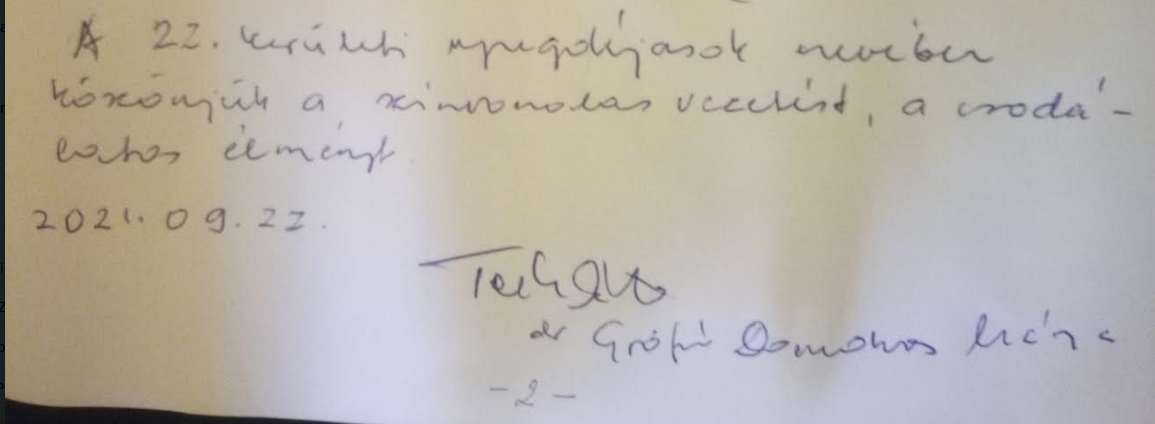 A 22. kerületi nyugdíjasok nevében
köszönjük a színvonalas vezetést, a csodá-
latos élményt.
2021.09.22.
dr Domokos
-2-